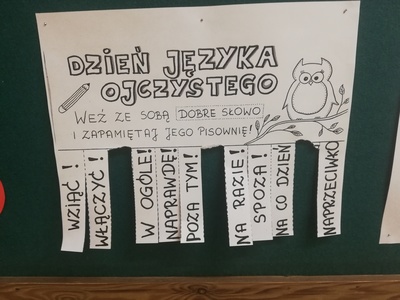 DZIEŃ JĘZYKA
OJCZYSTEGO
WEŹ ZE SOBĄ DOBRE SŁOWO
I ZAPAMIĘTAJ JEGO PISOWNIĘ!
WZIĄĆ!
WŁĄCZYĆ!
W OGÓLE!
NAPRAWDĘ!
POZA TYM!
NA RAZIE!
SPOZA!
NA CO DZIEŃ
NAPRZECIWKO